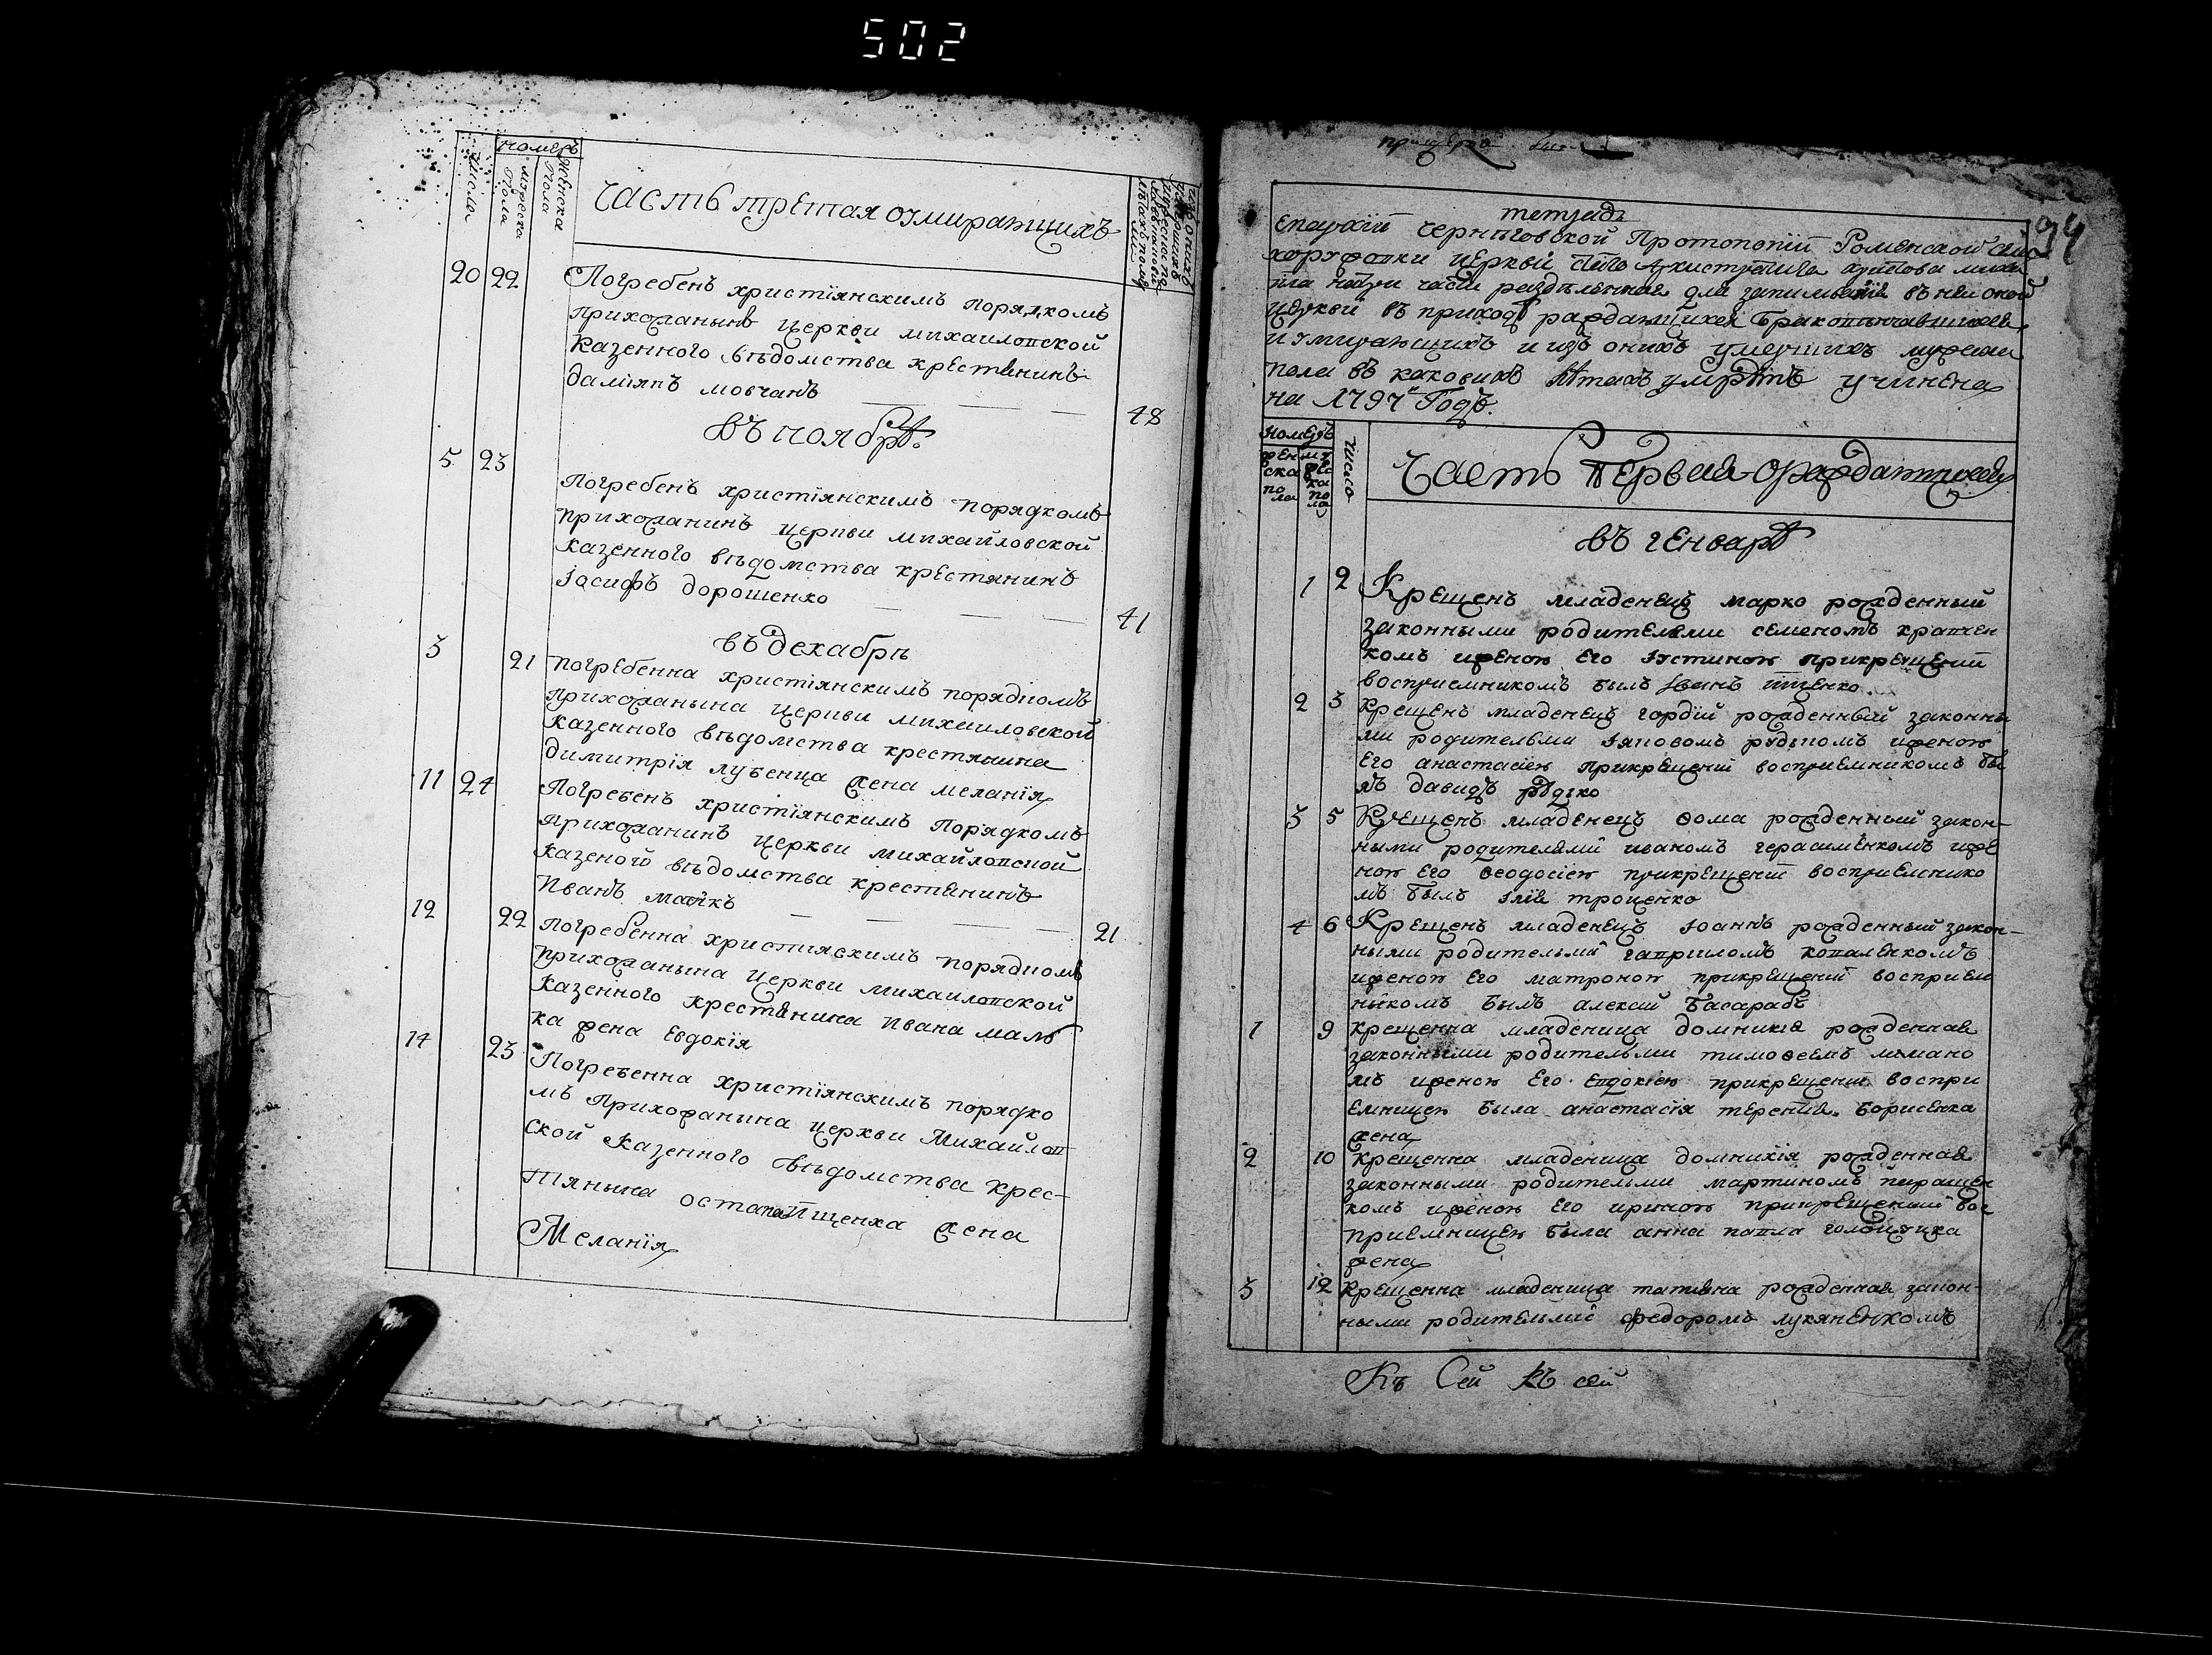 502
номеръ
числа
мужеска пола
женска пола
часть третая оумирающихъ
20 22 Погребенъ христїянскимъ порядкомъ
прихожанинъ церкви михаиловской
казенного вѣдомства крестянинъ
даміянъ мовчанъ 48
въ ноябрѣ
5 23 Погребенъ христїянскимъ порядкомъ
прихожанинъ церкви михайловской
казенного вѣдомства крестянинъ
Іосифъ дорошенко 41
въ декабрѣ
3 21 погребенна христїянскимъ порядкомъ
прихожанына церкви михаиловской
казенного вѣдомства крестянина
димитрія лубенца жена меланія
11 24 Погребенъ христїянскимъ Порядкомъ
прихожанинъ церкви михайловской
казеного вѣдомства крестянинъ
Иванъ 21
12 22 Погребенна християскимъ порядкомъ
прихожанына церкви михаиловской
казенного крестянина Ивана
ка жена Евдокія
14 23 Погребенна христїянскимъ порядко
мъ Прихожанына церкви Михайлов
ской Казенного вѣдомства крес-
тянына остапа Ищенка жена
Меланія
94
тетрадь
Епархїи черниговской Протопопїи Роменской села
хоружовки церкви архистратига михаи
ла на три части раздѣленная для записыванія въ ней оной
церкви въ приходѣ раждающихся бракосочетавшихся
и умирающихъ и изъ онихъ умершихъ мужеска
пола въ каковихъ лѣтахъ умрѣтъ учинена
на 1797 Годъ.
номеръ
женска пола
мужеска пола
число
Часть Первая о раждающихся
въ генварѣ
1 2 Крещенъ младенецъ марко рожденный
законными родителями семеномъ кравчен
комъ иженою его Іустиною прикрещении
восприемникомъ былъ Іванъ
2 3 Крещенъ младенецъ гордїй рожденный законны
ми родительми Іаковомъ иженою
Его анастасіею прикрещенїи восприемникомъ бы
лъ давидъ
3 5 Крещенъ младенецъ ѳома рожденный закон-
ными родителями иваномъ герасименкомъ иже
ною Его ѳеодосіею прикрещенїи восприемнико
мъ былъ Ілія троценко
4 6 Крещенъ младенецъ Іоаннъ рожденный закон-
ными родительми гавриломъ коваленкомъ
иженою Его матроною прикрещенїи восприем
никомъ былъ алексій басарабъ
1 9 крещенна младеница домникія рожденная
законными родительми тимоѳеемъ
мъ иженою Его евдокією прикрещенїи воспри
емницею была анастасія терентія борисенка
жена
2 10 крещенна младеница домникія рожденная
законными родительми мартиномъ
комъ иженою Его ириною прикрещении вос
приемницею была анна павла
жена
3 12 Крещенна младеница татіяна рожденная закон-
ными родительми федоромъ лукяненкомъ
Къ Сей къ сей